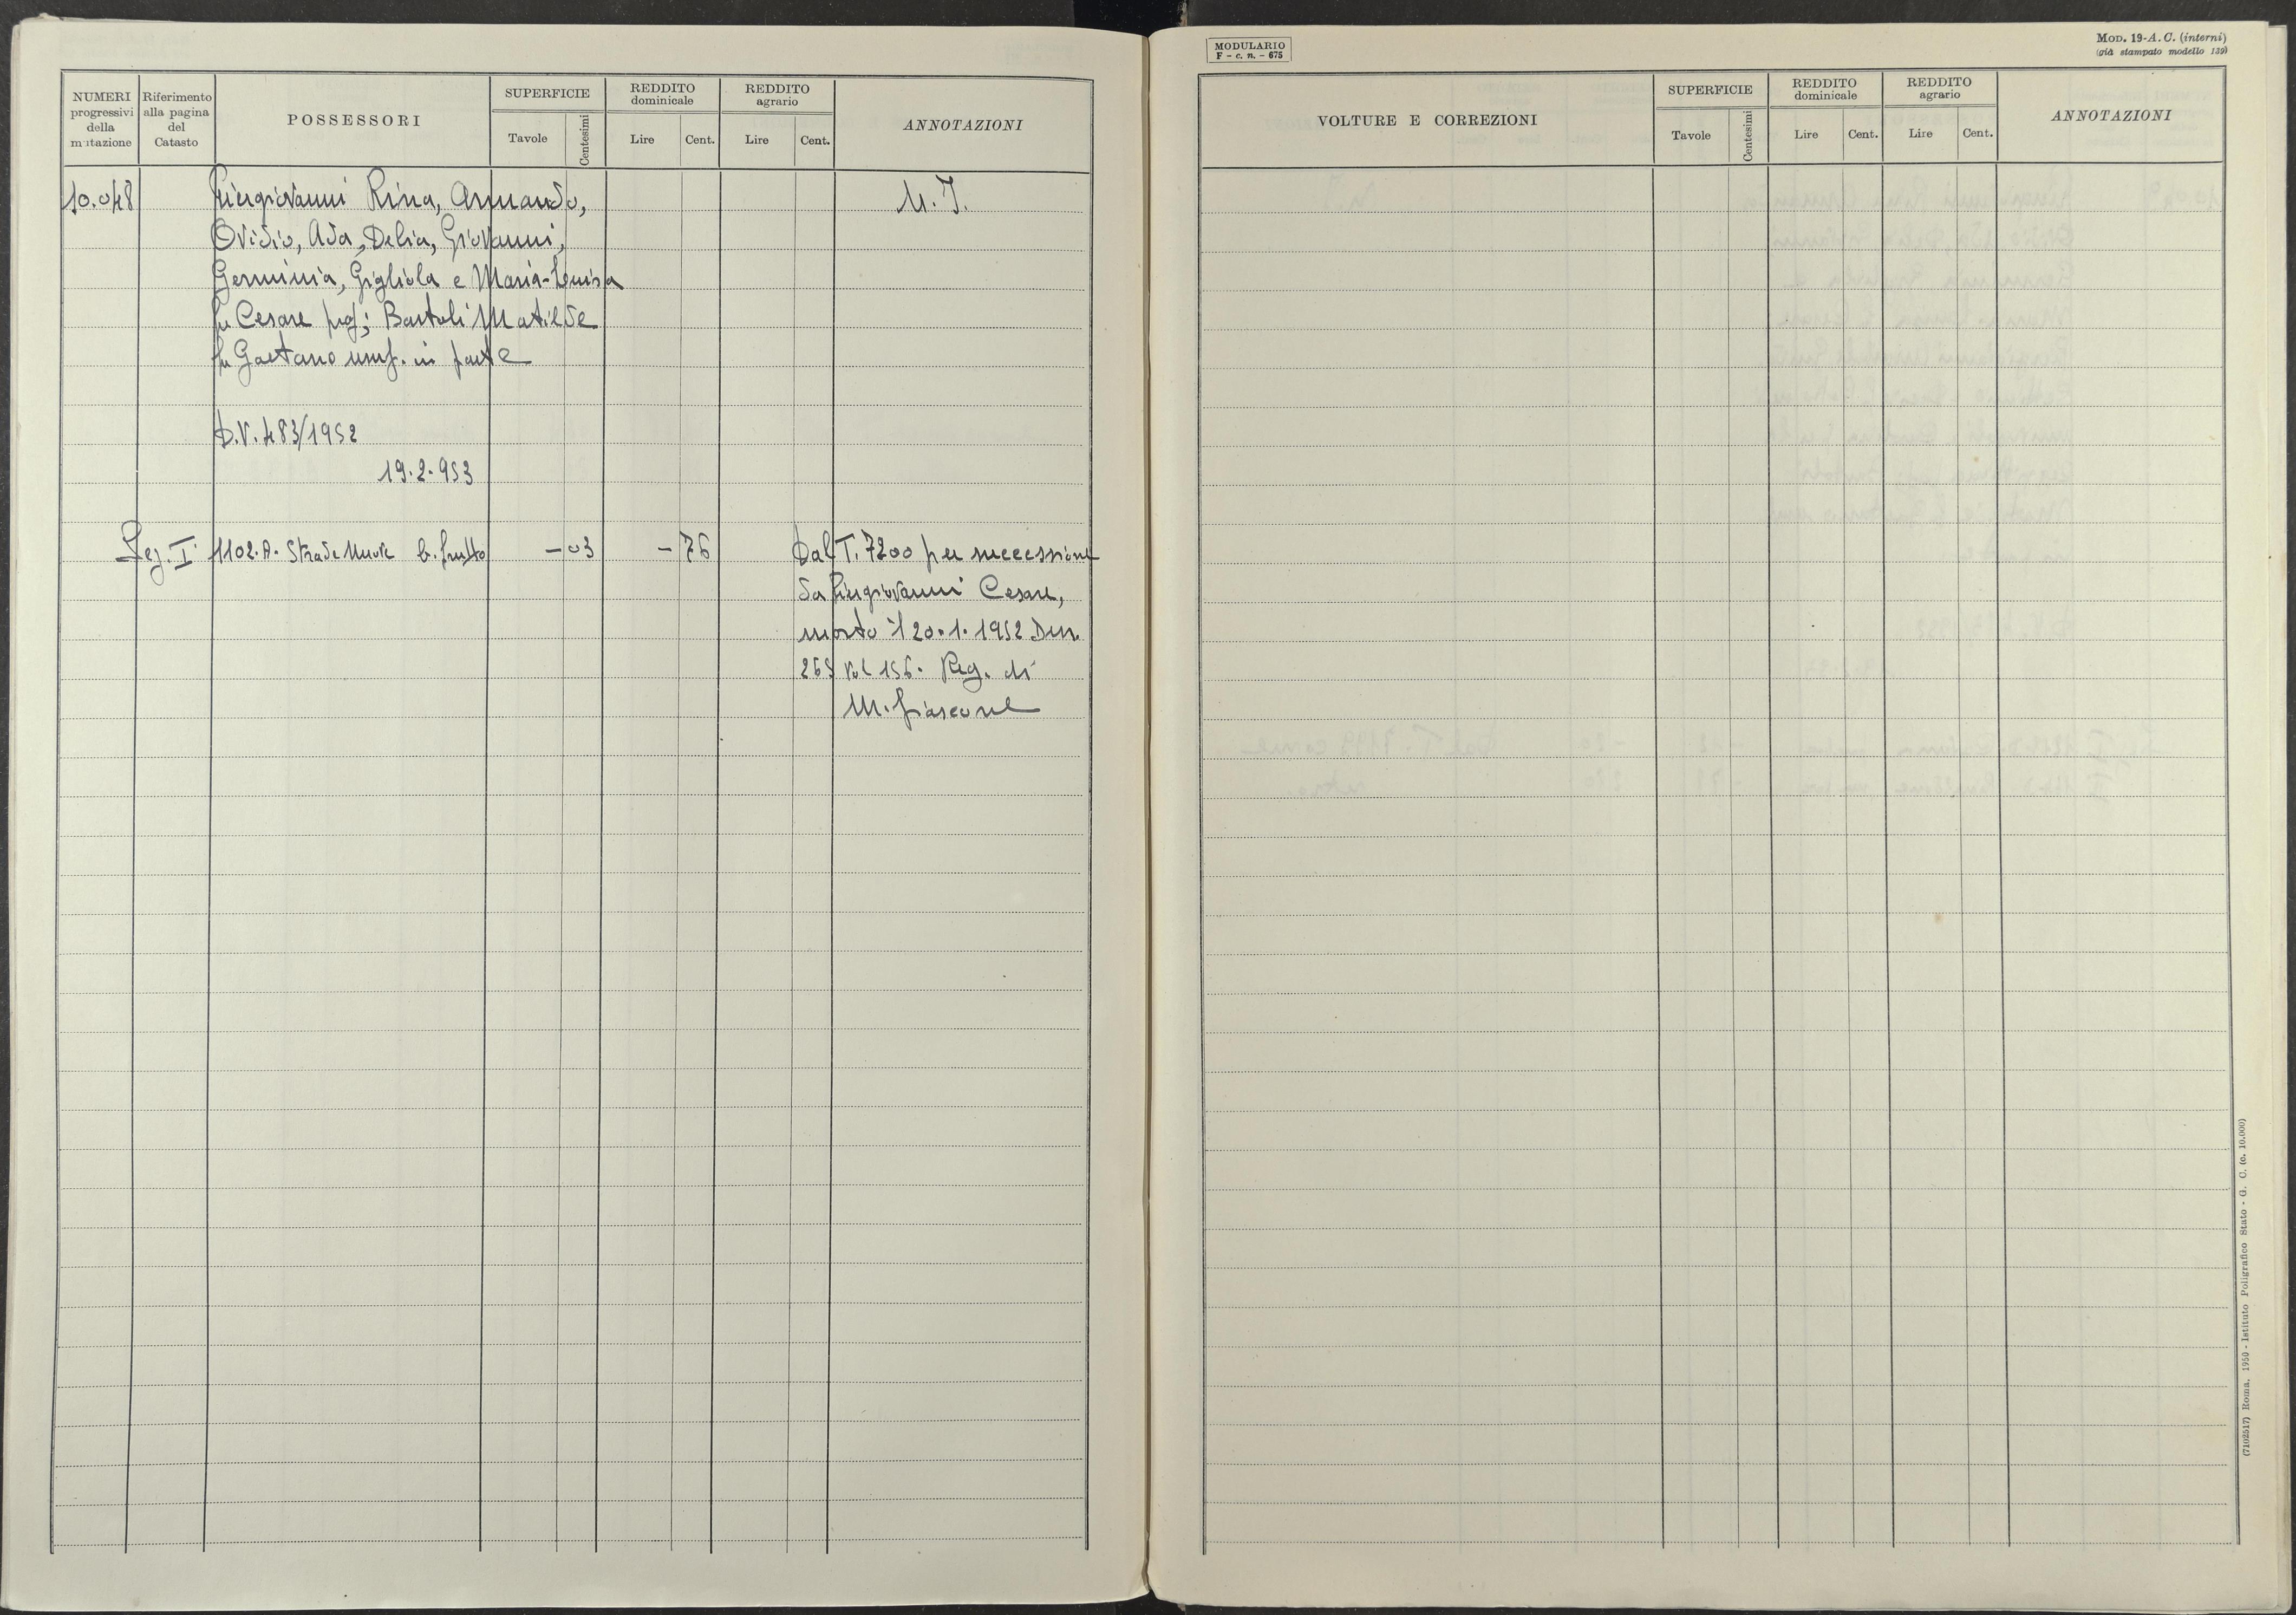 NUMERI progressivi della mutazione
Riferimento alla pagina del Catasto
POSSESSORI
SUPERFICIE
Tavole
Centesimi
REDDITO dominicale
Lire
Cent.
REDDITO agrario
Lire
Cent.
ANNOTAZIONI
10.048 Piergiovanni Rina, Armando, M. I.
Ovidio, Ada, Delia, Giovanni,
Germinia, Gigliola e Maria-Luisa
fu Cesare prof; Bartoli Matilde
fu Gaetano usuf. in parte
D.V. 483/1952
19.2.953
Sez. I 1102.A. Strade Nuove b. frutto - 03 - 76 Dal T. 7200 per successione
da Piergiovanni Cesare,
morto il 20.1.1952 Den.
265 Vol 156. Reg. di
M. fiascone
MODULARIO
F - c. n. - 675
MOD. 19-A. C. (interni)
(già stampato modello 139)
VOLTURE E CORREZIONI
SUPERFICIE
Tavole
Centesimi
REDDITO dominicale
Lire
Cent.
REDDITO agrario
Lire
Cent.
ANNOTAZIONI
(7102517) Roma, 1950 - Istituto Poligrafico Stato - G. C. (c. 10.000)